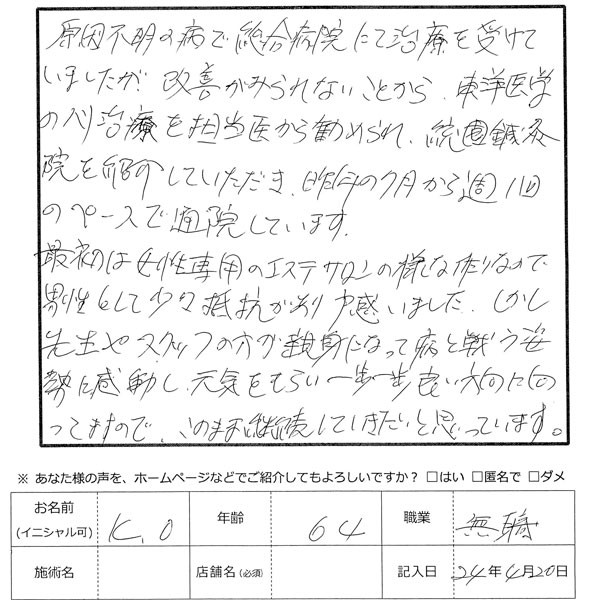 原因不明の病で総合病院にて治療を受けて
いましたが 改善がみられないことから、東洋医学
の 治療を担当医から勧められ、鍼灸
院を紹介していただき、昨年の7月から週1回
のペースで通院しています。
最初は女性専用のエステサロンの様な作りなので
男性として少々抵抗があり戸惑いました。しかし
先生やスタッフの方が親身になって病と戦う姿
勢に感動し、元気をもらい一歩一歩良い方向に向
ってますので、このまま継続していきたいと思っています。
※ あなた様の声を、ホームページなどでご紹介してもよろしいですか？ □はい □匿名で □ダメ
お名前 (イニシャル可) K.O 年齢 64 職業 無職
施術名 店舗名（必須） 記入日 24年4月20日